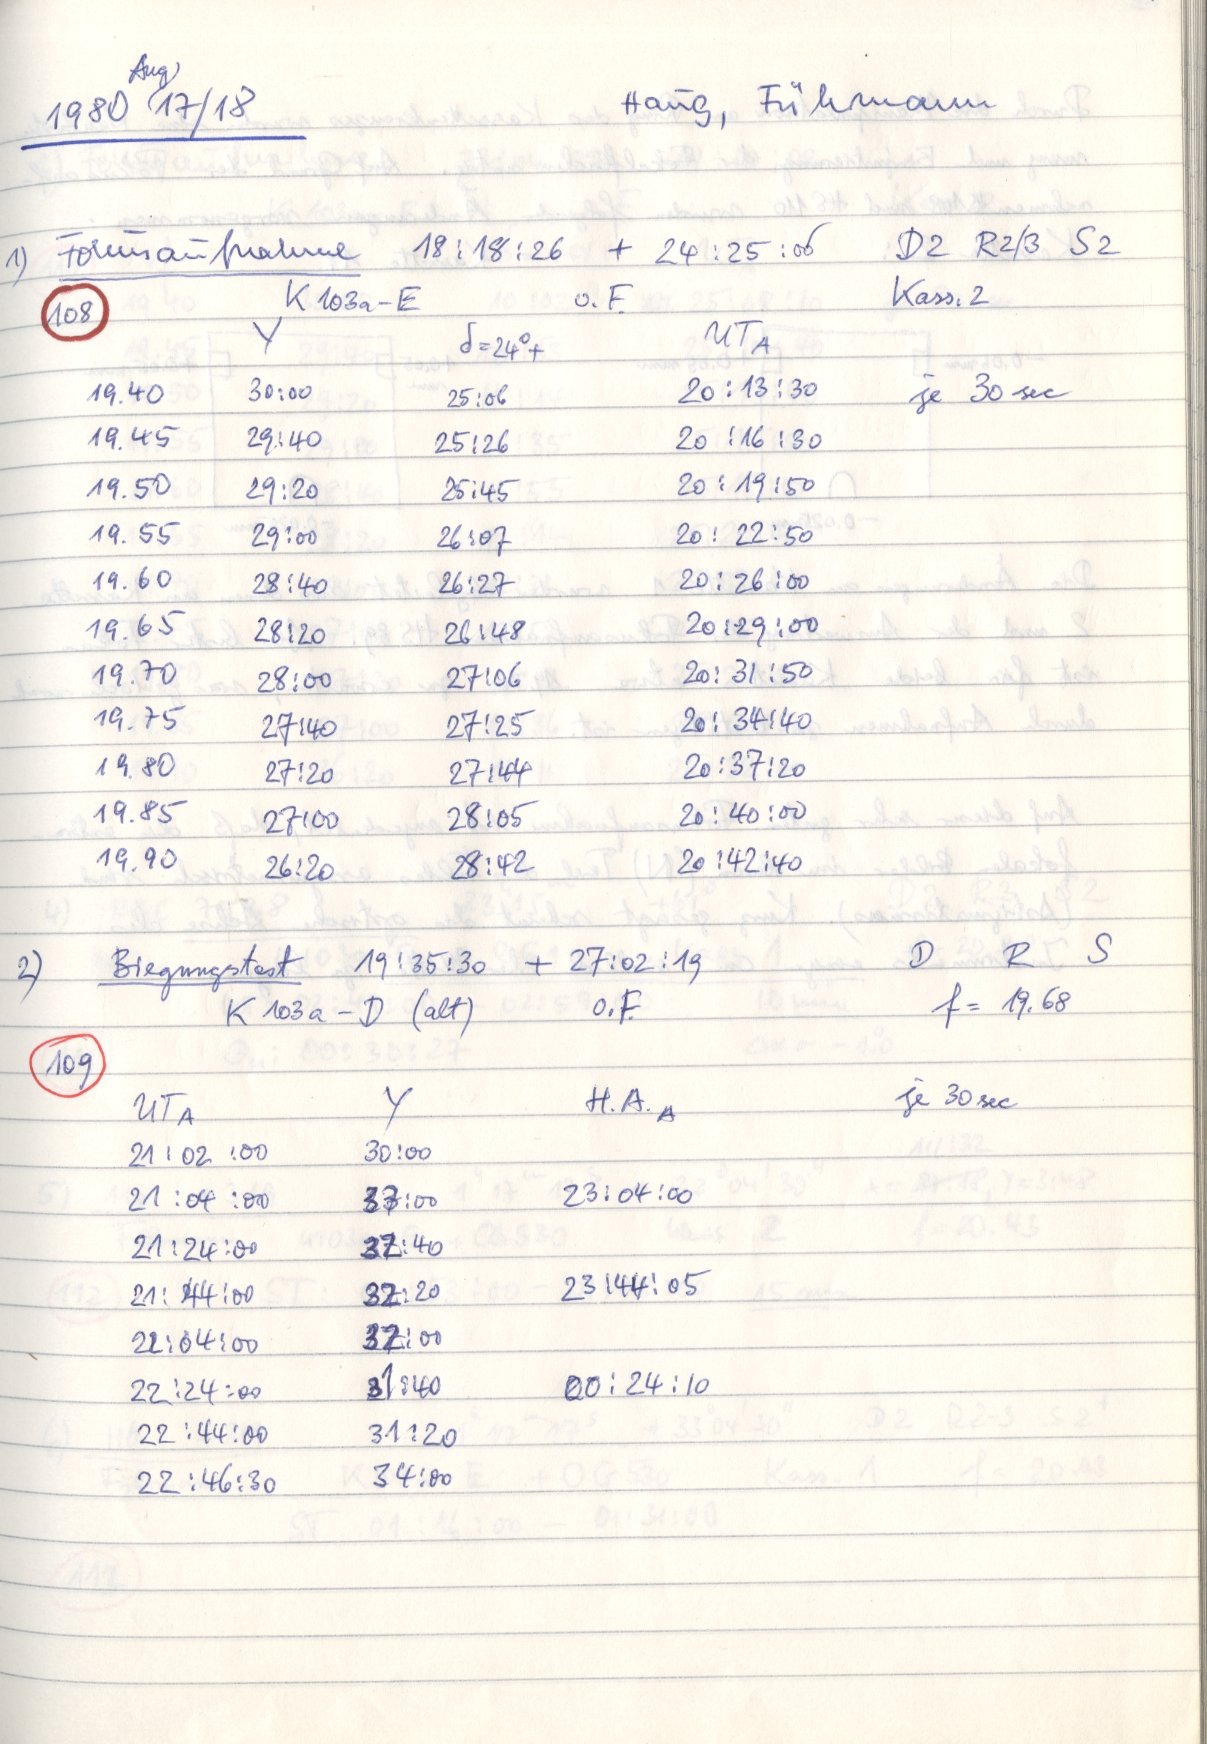 Aug
1980 17/18 Haug, Fühmann
1) Fokusaufnahme 18:18:26 + 24:25:06 D2 R2/3 S2
108 K 103a-E o.F. Kass. 2
Y δ=24°+ UTA
19.40 30:00 25:06 20:13:30 je 30 sec
19.45 29:40 25:26 20:16:30
19.50 29:20 25:45 20:19:50
19.55 29:00 26:07 20:22:50
19.60 28:40 26:27 20:26:00
19.65 28:20 26:48 20:29:00
19.70 28:00 27:06 20:31:50
19.75 27:40 27:25 20:34:40
19.80 27:20 27:44 20:37:20
19.85 27:00 28:05 20:40:00
19.90 26:20 28:42 20:42:40
2) Biegungstest 19:35:30 + 27:02:19 D R S
K 103a-D (alt) o.F. f = 19.68
109
UTA Y H.A.A je 30 sec
21:02:00 30:00
21:04:00 33:00 23:04:00
21:24:00 32:40
21:44:00 32:20 23:44:05
22:04:00 32:00
22:24:00 31:40 00:24:10
22:44:00 31:20
22:46:30 34:00